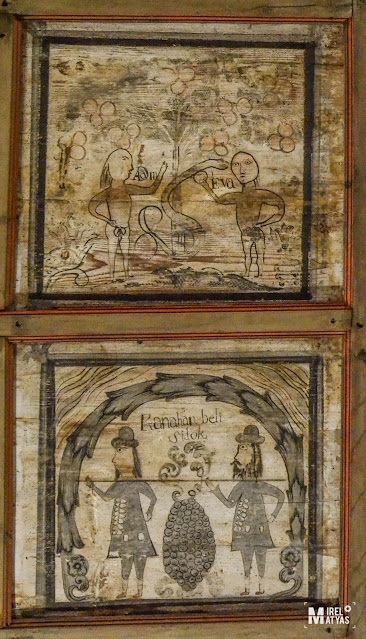 Adam
Eva
Kanahán beli
sidók
MIREL
MATYAS